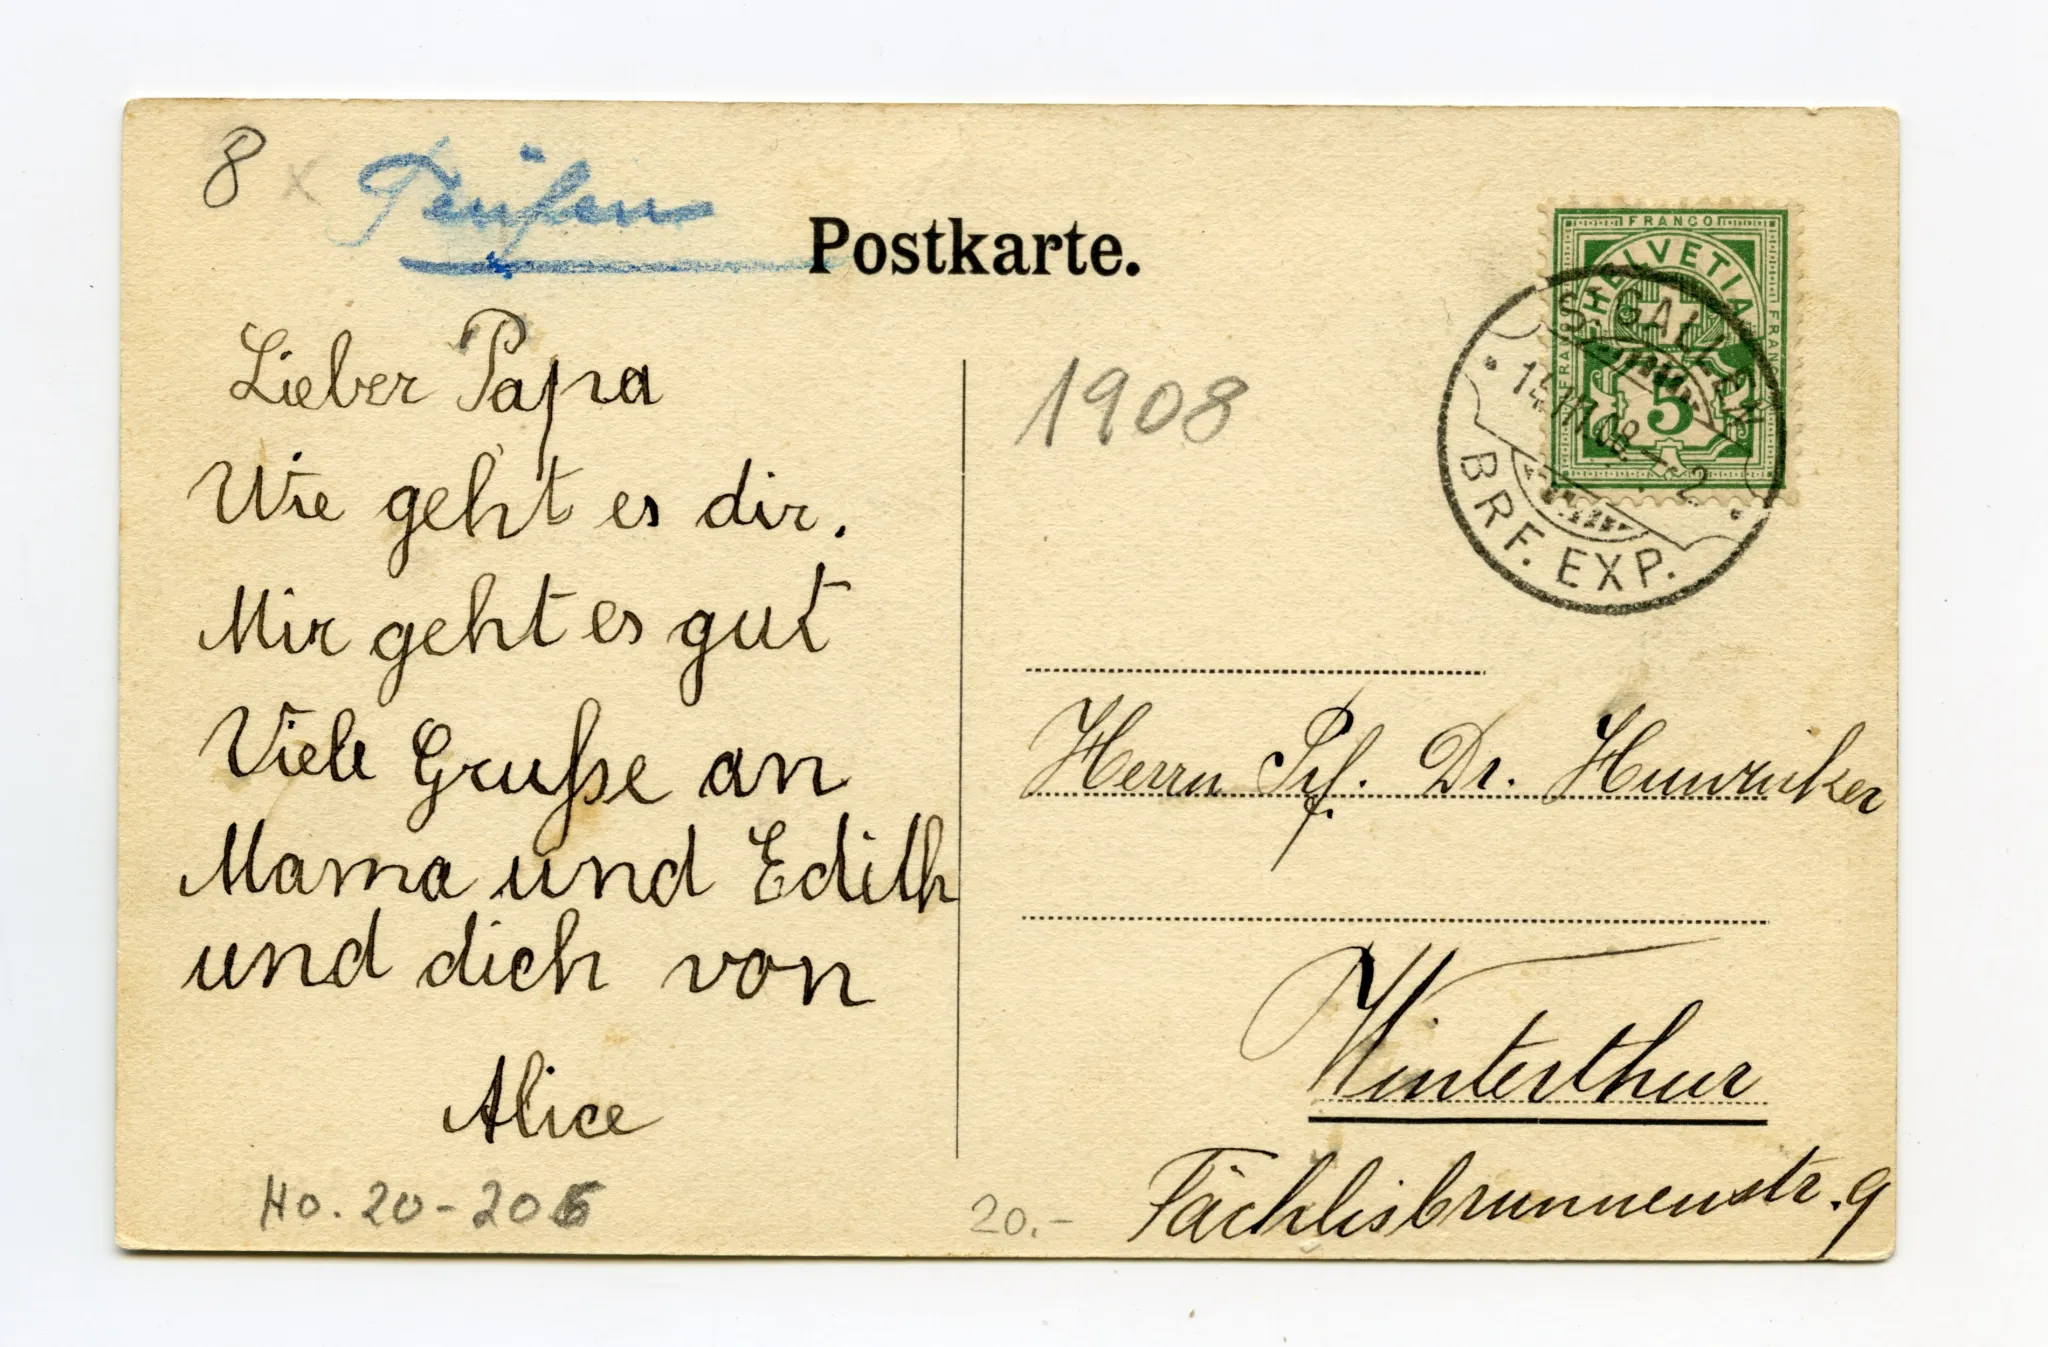 8 x Teüfen
Postkarte.
FRANCO
HELVETIA
FRANCO
5
ST. GALLEN
BRF. EXP.
1908
Lieber Papa
Wie geht es dir.
Mir geht es gut
Viele Grüsse an
Mama und Edith
und dich von
Alice
Herrn Prf. Dr. Hunziker
Winterthur
Fächlisbrunnenstr. 9
Ho. 20-206
20.-